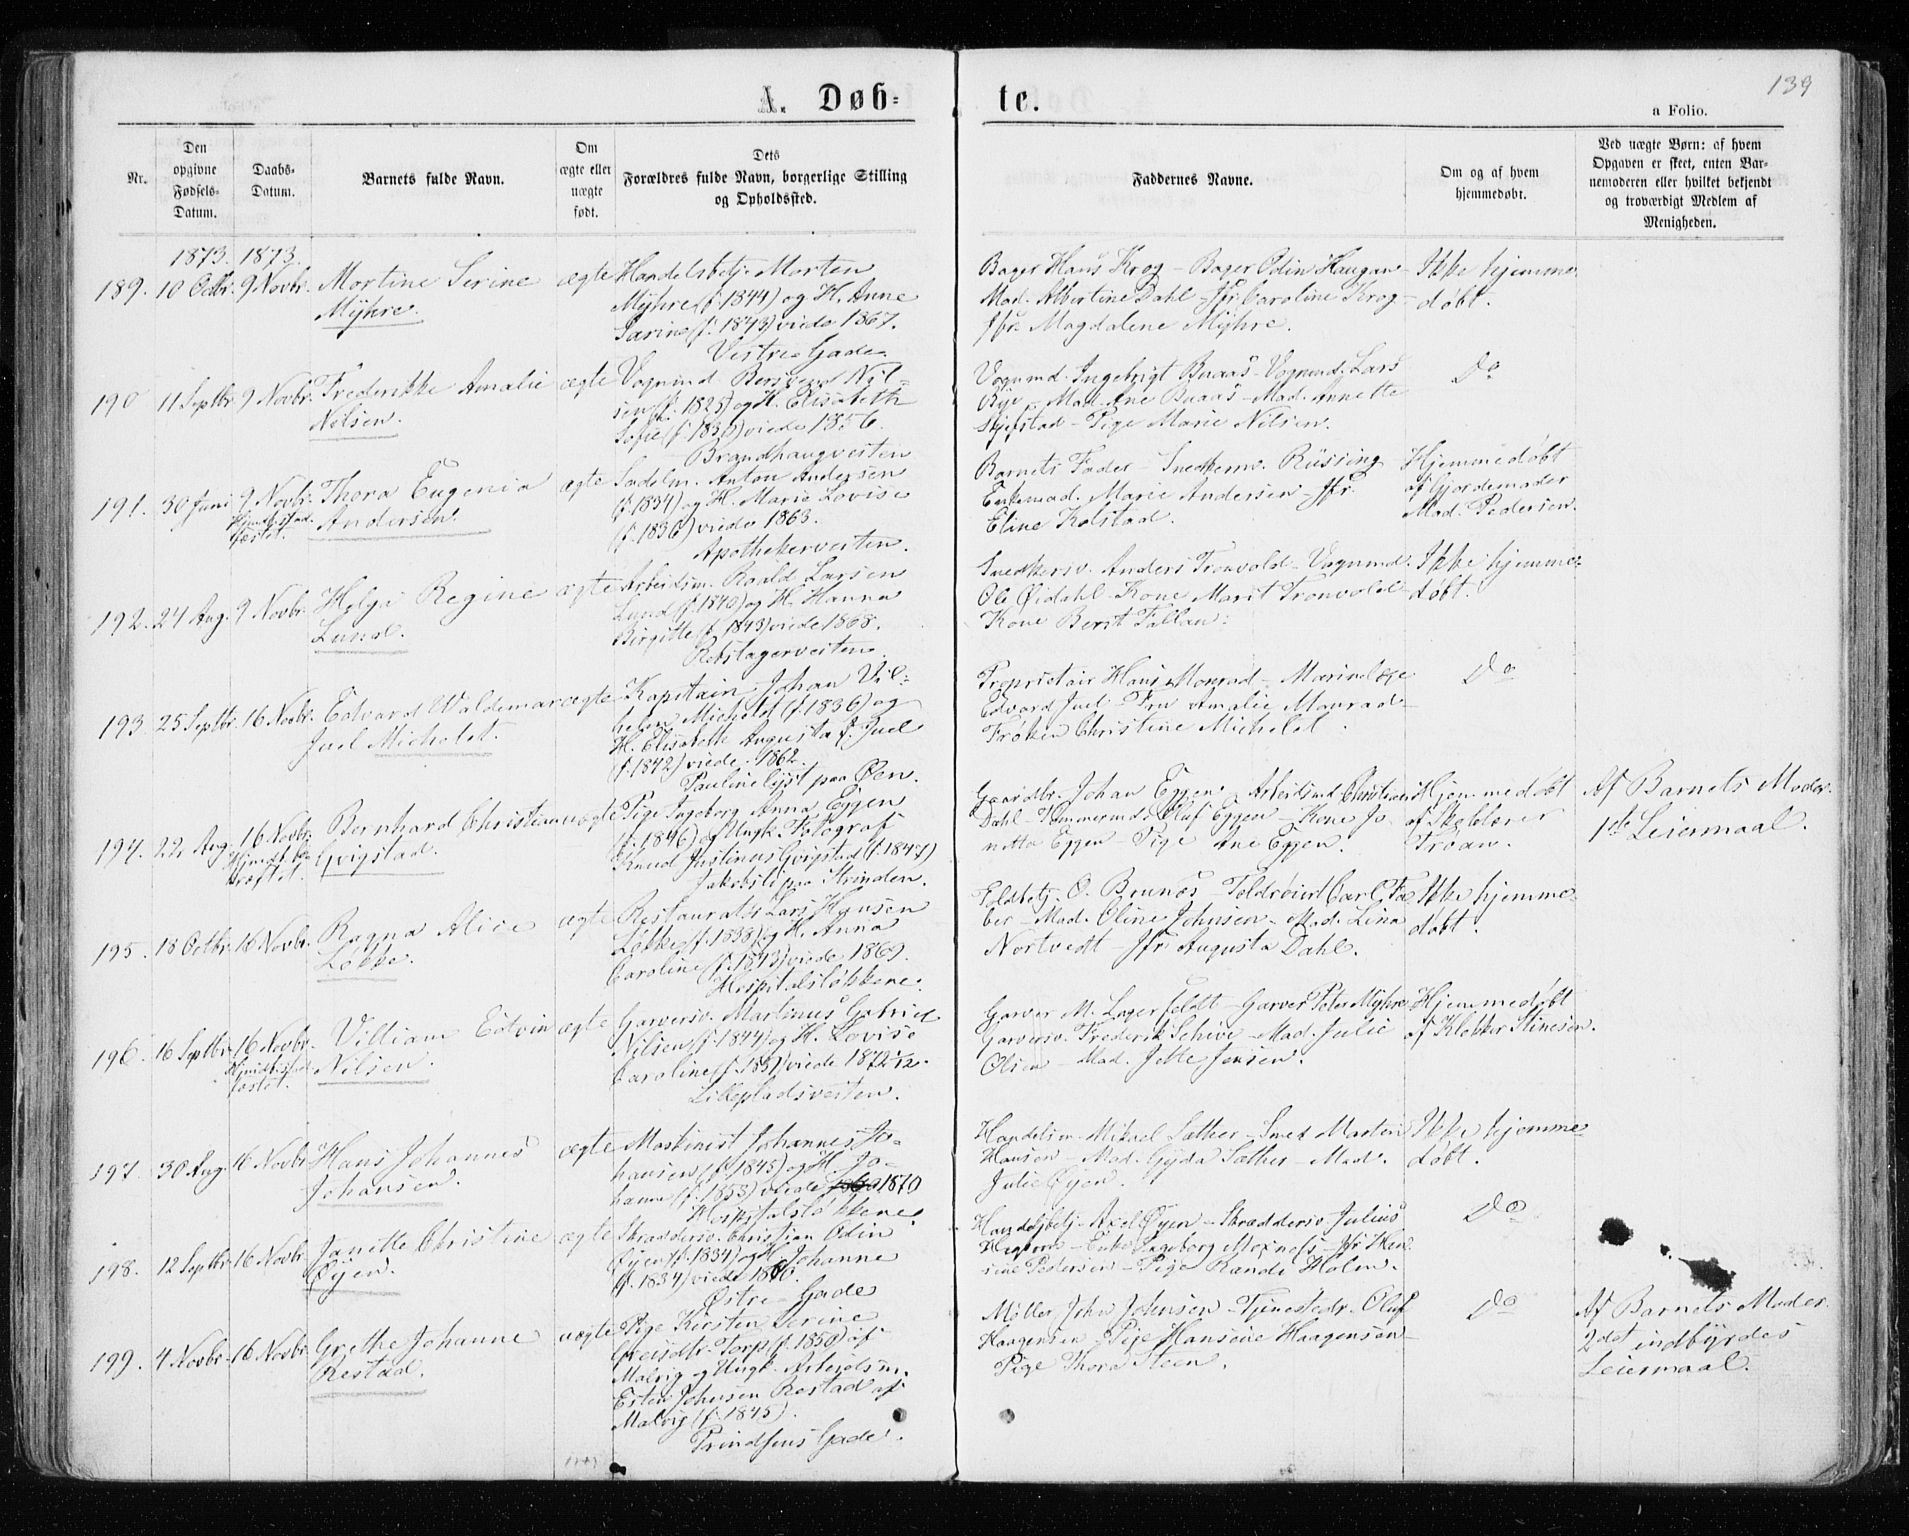 139
A. Døb=
te.
a Folio.
Nr.
Den opgivne Fødsels-Datum.
Daabs-Datum.
Barnets fulde Navn.
Om ægte eller uægte født.
Dets Forældres fulde Navn, borgerlige Stilling og Opholdssted.
Faddernes Navne.
Om og af hvem hjemmedøbt.
Ved uægte Børn: af hvem Opgaven er skeet, enten Barnemoderen eller hvilket bekjendt og troværdigt Medlem af Menigheden.
1873. 1873.
189. 10 Octbr. 9 Novbr. Mortine Serine ægte Handelsbetj. Morten
Myhre.
Myhre (f. 1844) og H. Anne
Sarine (f. 1843) viede 1867.
Vestre Gade.
Bager Hans Krog – Bager Odin Haugan –
Mad. Albertine Dahl – Jfr. Caroline Krog –
Jfr. Magdalene Myhre.
Ikke hjemme
døbt.
190 11 Septbr. 9 Novbr. Frederikke Amalie ægte
Nilsen.
Vognmd. Bersvend Nil=
sen (f. 1825) og H. Elisabeth
Sofie (f. 1830) viede 1856.
Brandhaugveiten
Vognmd. Ingebrigt Buaas – Vognmd. Lars
Bye – Mad. Ane Buaas – Mad. Annette
Skjefstad – Pige Marie Nilsen.
Do
191. 30 Juni 9 Novbr. Thora Eugenia ægte
Andersen.
Sadelm. Anton Andersen
(f. 1834) og H. Marie Lovise
(f. 1836) viede 1863.
Apothekerveiten.
Barnets Fader – Snedkersv. Rüssing
Enkemad. Marie Andersen – Jfr.
Eline Kolstad.
Hjemmedøbt
af Gjordemoder
Mad. Pedersen.
192. 24 Aug. 9 Novbr. Helga Regine ægte
Lund.
Arbeidsm. Roald Larsen
Lund (f. 1840) og H. Hanna
Birgitte (f. 1843) viede 1868.
Rebslagerveiten.
Snedkersv. Anders Tronvold – Vognmd.
Ole Øidahl – Kone Marit Tronvold –
Kone Berit Fallan.
Ikke hjemme=
døbt.
193 25 Septbr. 16 Novbr. Edvard Waldemar ægte
Juel Michelet.
Kapitain Johan Vil=
helm Michelet (f. 1836) og
H. Elisabeth Augusta f. Juel
(f. 1842) viede 1862.
Paulinelyst paa Øen.
Proprietair Hans Monrad – Marinelæge
Edvard Juel – Fru Amalie Monrad –
Frøken Christine Michelet.
Do
194. 22 Aug. 16 Novbr. Bernhard Christian uægte
Gvigstad.
Pige Ingeborg Anna Eggen
(f. 1846) og Ungk. Fotograf
Knud Justinus Gvigstad (f. 1847)
Jakobsli paa Strinden.
Gaardbr. Johan Eggen – Arbeidsmd. Christian
Dahl – Tømmermd. Oluf Eggen – Kone Jo
nette Eggen – Pige Ane Eggen.
Hjemmedøbt
af Skolelærer
Troan.
Af Barnets Moder.
1ste Leiermaal.
195. 18 Octbr. 16 Novbr. Ragna Alice ægte
Løkke.
Restauratør Lars Hansen
Løkke (f. 1838) og H. Anna
Caroline (f. 1843) viede 1869.
Hospitalsløkkene.
Toldbetj. O. Brunes – Toldrorer Carl Fa
ber – Mad. Oline Johnsen – Mad. Lina
Nortvedt – Jfr. Augusta Dahl.
Ikke hjemme=
døbt.
196 16 Septbr. 16 Novbr. Villiam Edvin ægte
Nilsen.
Garversv. Martinus Gabriel
Nilsen (f. 1844) og H. Lovise
Caroline (f. 1851) viede 1872
Lillepladsveiten.
Garver M. Lagerfeldt – Garver Peter Myhre
Garversv. Frederik Scheve – Mad. Julie
Olsen – Mad. Jette Jensen.
Hjemmedøbt
af Klokker Stinesen.
197. 30 Aug. 16 Novbr. Hans Johannes ægte
Johansen.
Maskinist Johannes Jo=
hansen (f. 1845) og H. Jo=
hanna (f. 1853) viede 1870
Hospitalsløkkene.
Handelsm. Mikael Sæther – Smed Martin
Hansen – Mad. Gyda Sæther – Mad.
Julie Øyen.
Ikke hjemme=
døbt.
198. 12 Septbr. 16 Novbr. Janette Christine ægte
Øyen.
Skræddersv. Christian Odin
Øyen (f. 1834) og H. Johanne
(f. 1834) viede 1860.
Østre Gade
Handelsbetj. Axel Øyen – Skræddersv. Julius
– Enke Ingeborg Moxness – Jfr. Hen
sine Pedersen – Pige Randi Holm.
Do
199. 4 Novbr. 16 Novbr. Grethe Johanne uægte
Restad.
Pige Kirsten Serine
Greisdtr. Torp (f. 1850) af
Malvig og Ungk. Arbeidsm.
Esten Johnsen Restad af
Malvig (f. 1845).
Prindsens Gade.
Møller John Johnsen – Tjenestedr. Oluf
Haagensen – Pige Hansine Haagensen –
Pige Thora Steen.
Do
Af Barnets Moder.
2det indbyrdes
Leiermaal.